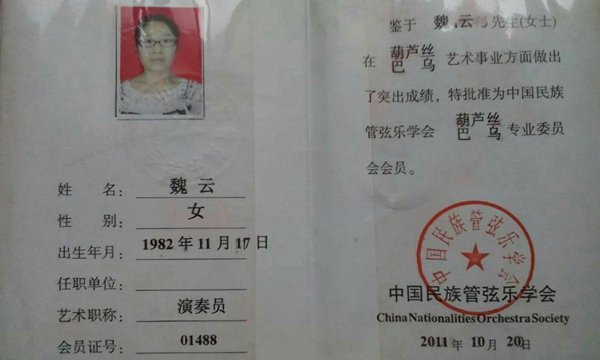 姓 名： 魏 云
性 别： 女
出生年月： 1982 年 11 月 17 日
任职单位：
艺术职称： 演奏员
会员证号： 01488
鉴于 魏 云 先生(女士)
在 葫芦丝 巴乌 艺术事业方面做出
了突出成绩，特批准为中国民族
管弦乐学会 葫芦丝 巴乌 专业委员
会会员。
中国民族管弦乐学会
中国民族管弦乐学会
China Nationalities Orchestra Society
2011 年 10 月 20 日